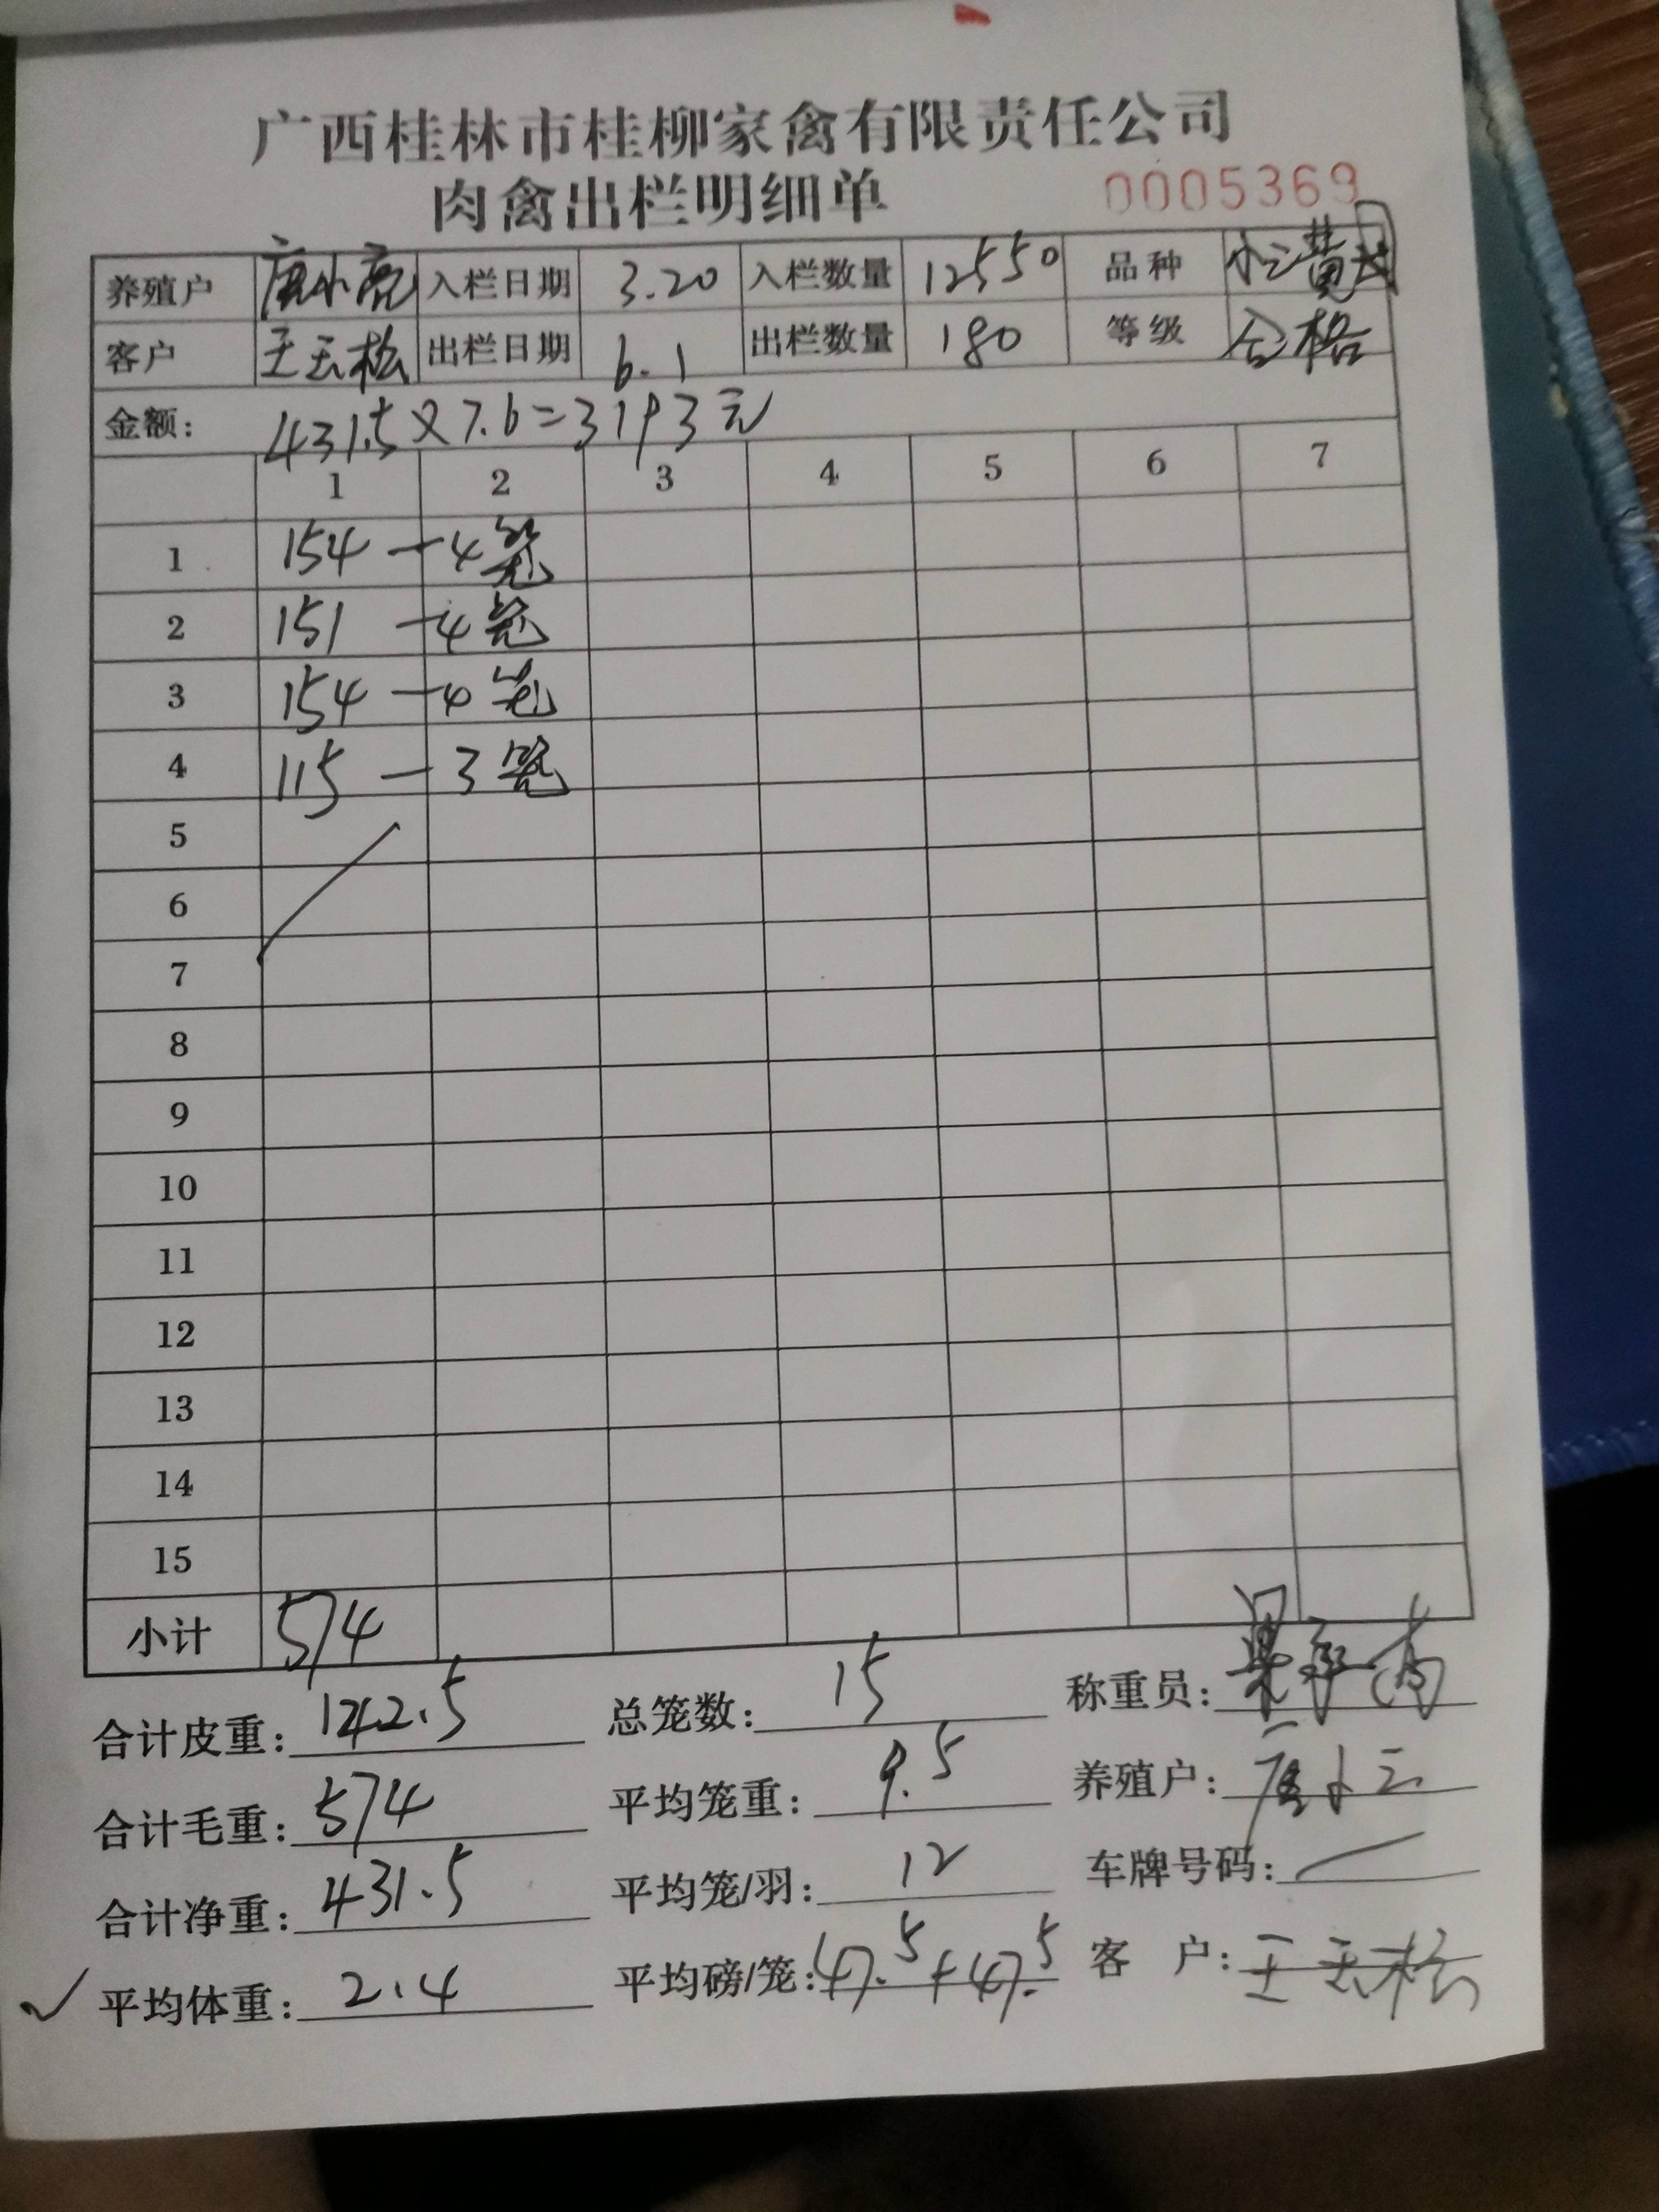 广西桂林市桂柳家禽有限责任公司
肉禽出栏明细单 0005369
养殖户 唐小亮 入栏日期 3.20 入栏数量 12550 品种 小三黄
客户 王玉松 出栏日期 6.1 出栏数量 180 等级 合格
金额: 431.5×7.6=3193元
1 2 3 4 5 6 7
1 154 — 4笼
2 151 — 4笼
3 154 — 4笼
4 115 — 3笼
5
6
7
8
9
10
11
12
13
14
15
小计 574
合计皮重: 142.5 总笼数: 15 称重员:
合计毛重: 574 平均笼重: 9.5 养殖户: 唐小
合计净重: 431.5 平均笼/羽: 12 车牌号码:
平均体重: 2.4 平均磅/笼: 47.5+47.5 客 户: 王玉松